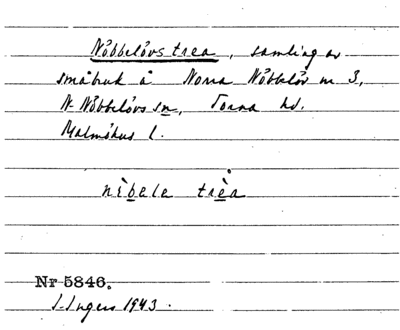 Nöbbelövstrea, samling av
småbruk å Norra Nöbbelöv nr 3,
N. Nöbbelövs sn, Torna hd.
Malmöhus l.
nìbele trèa
Nr 5846.
I. Ingers 1943.